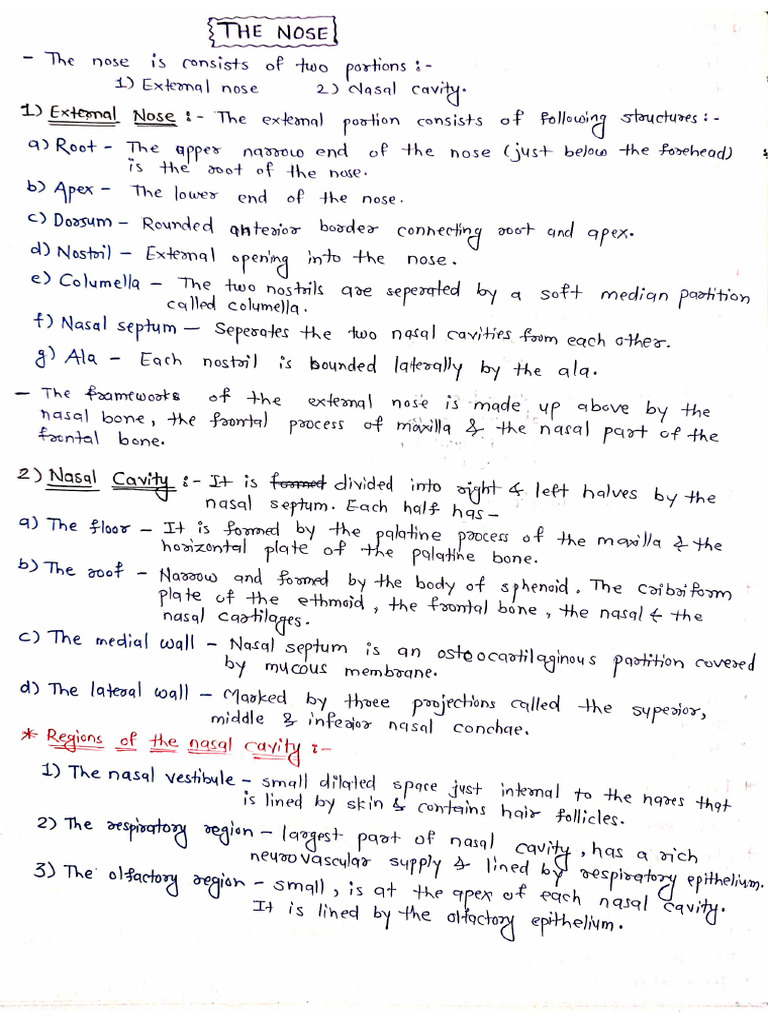 THE NOSE
- The nose is consists of two portions :-
1) External nose 2) Nasal cavity.
1) External Nose :- The external portion consists of following structures :-
a) Root - The apper narrow end of the nose (just below the forehead)
is the root of the nose.
b) Apex - The lower end of the nose.
c) Dorsum - Rounded anterior border connecting root and apex.
d) Nostril - External opening into the nose.
e) Columella - The two nostrils are seperated by a soft median partition
called columella.
f) Nasal septum - Seperates the two nasal cavities from each other.
g) Ala - Each nostril is bounded laterally by the ala.
- The frameworks of the external nose is made up above by the
nasal bone, the frontal process of maxilla & the nasal part of the
frontal bone.
2) Nasal Cavity :- It is formed divided into right & left halves by the
nasal septum. Each half has -
a) The floor - It is formed by the palatine process of the maxilla & the
horizontal plate of the palatine bone.
b) The roof - Narrow and formed by the body of sphenoid. The cribriform
plate of the ethmoid, the frontal bone, the nasal & the
nasal cartilages.
c) The medial wall - Nasal septum is an osteocartilaginous partition covered
by mucous membrane.
d) The lateral wall - Marked by three projections called the superior,
middle & inferior nasal conchae.
* Regions of the nasal cavity :-
1) The nasal vestibule - small dilated space just internal to the nares that
is lined by skin & contains hair follicles.
2) The respiratory region - largest part of nasal cavity, has a rich
neurovascular supply & lined by respiratory epithelium.
3) The olfactory region - small, is at the apex of each nasal cavity.
It is lined by the olfactory epithelium.